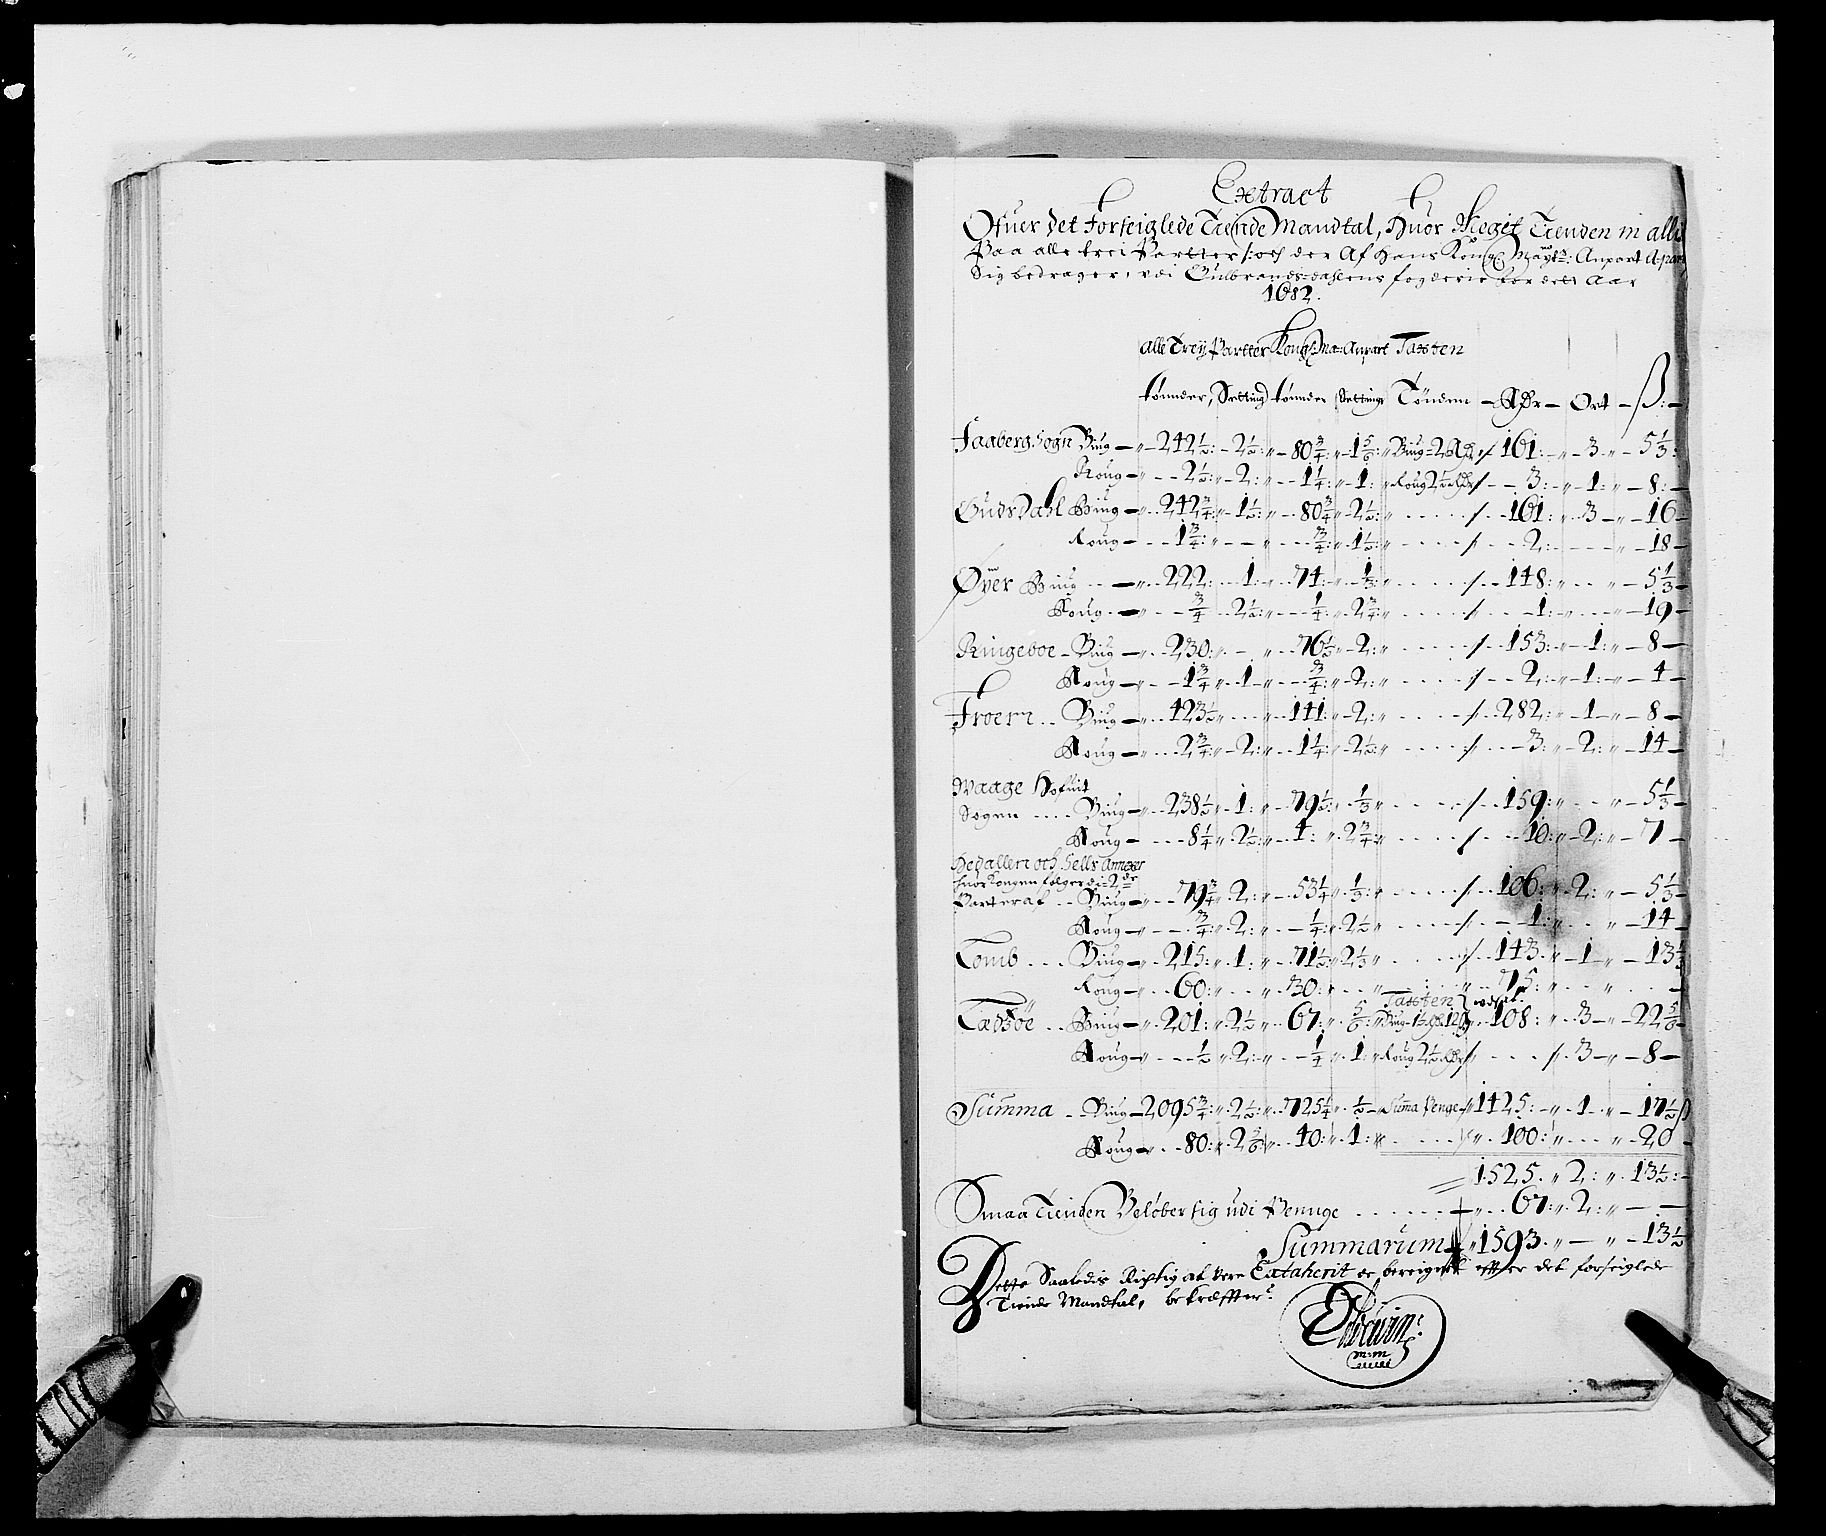 Extract
Ofuer det forseiglede Tiende Mandtal, huor Meget Tienden in alles
Paa alle trei Partter, och der af Hans Kong: Mayts: Anpart
Sig bedrager, udi Gulbrands-dahlens fogderie for dette Aar
1682.
Alle Treÿ Partter Kongl: Ma: Anpart Taxten
tønnder, Setting tønnder Setting Tönden Rdr Ort ß:
Faaberg Sogn Biug 242½ 2½ 80¾ 1⅚ Biug 2 Rdr 161 3 5⅓
Roug 2½ 2 1¼ 1 Roug 2½ Rdr 3 1 8
Gudsdahl Biug 242¾ 1½ 80¾ 2½ 161 3 16
Roug 1¾ ¾ 1½ 2 18
Øyer Biug 222 1 74 ⅓ 148 5⅓
Roug ¾ 2½ ¼ 2¾ 1 19
Ringeboe Biug 230 76½ 2 153 1 8
Roug 1¾ 1 ¾ 2 2 1 4
Froen Biug 423½ 141 2 282 1 8
Roug 2¾ 2 1¼ 2½ 3 2 14
Waage Hofuit
Sogen Biug 238½ 1 79½ ⅓ 159 5⅓
Roug 8¼ 2½ 4 2¾ 10 2 7
Hedallen och Sells Annexer
huor Kongen følger di 2de
Parter af Biug 79¾ 2 53¼ ⅓ 106 2 5⅓
Roug ¾ 2 ¼ 2½ 1 14
Lomb Biug 215 1 71½ 2⅓ 143 1 13⅓
Roug 60 30 75
Taxten
Lædsöe Biug 201 2½ 67 ⅚ 108 3 22⅚
Roug ½ 2 ¼ 1 Roug 2½ Rdr 3 8
Summa Biug 2095¾ 2½ 725¼ ½ Suma Penge 1425 1 17½ ß
Roug 80 2⅚ 40 1 100 20
1525 2 13½
Smaa Tienden Beløber sig udi Penuge 67 2
Summarum 1593 13½
Dette Saaledis Rigtig at vere Extaherit oc beregnet effter det forseiglede
Tiende Mandtal, bekræffter
m:m